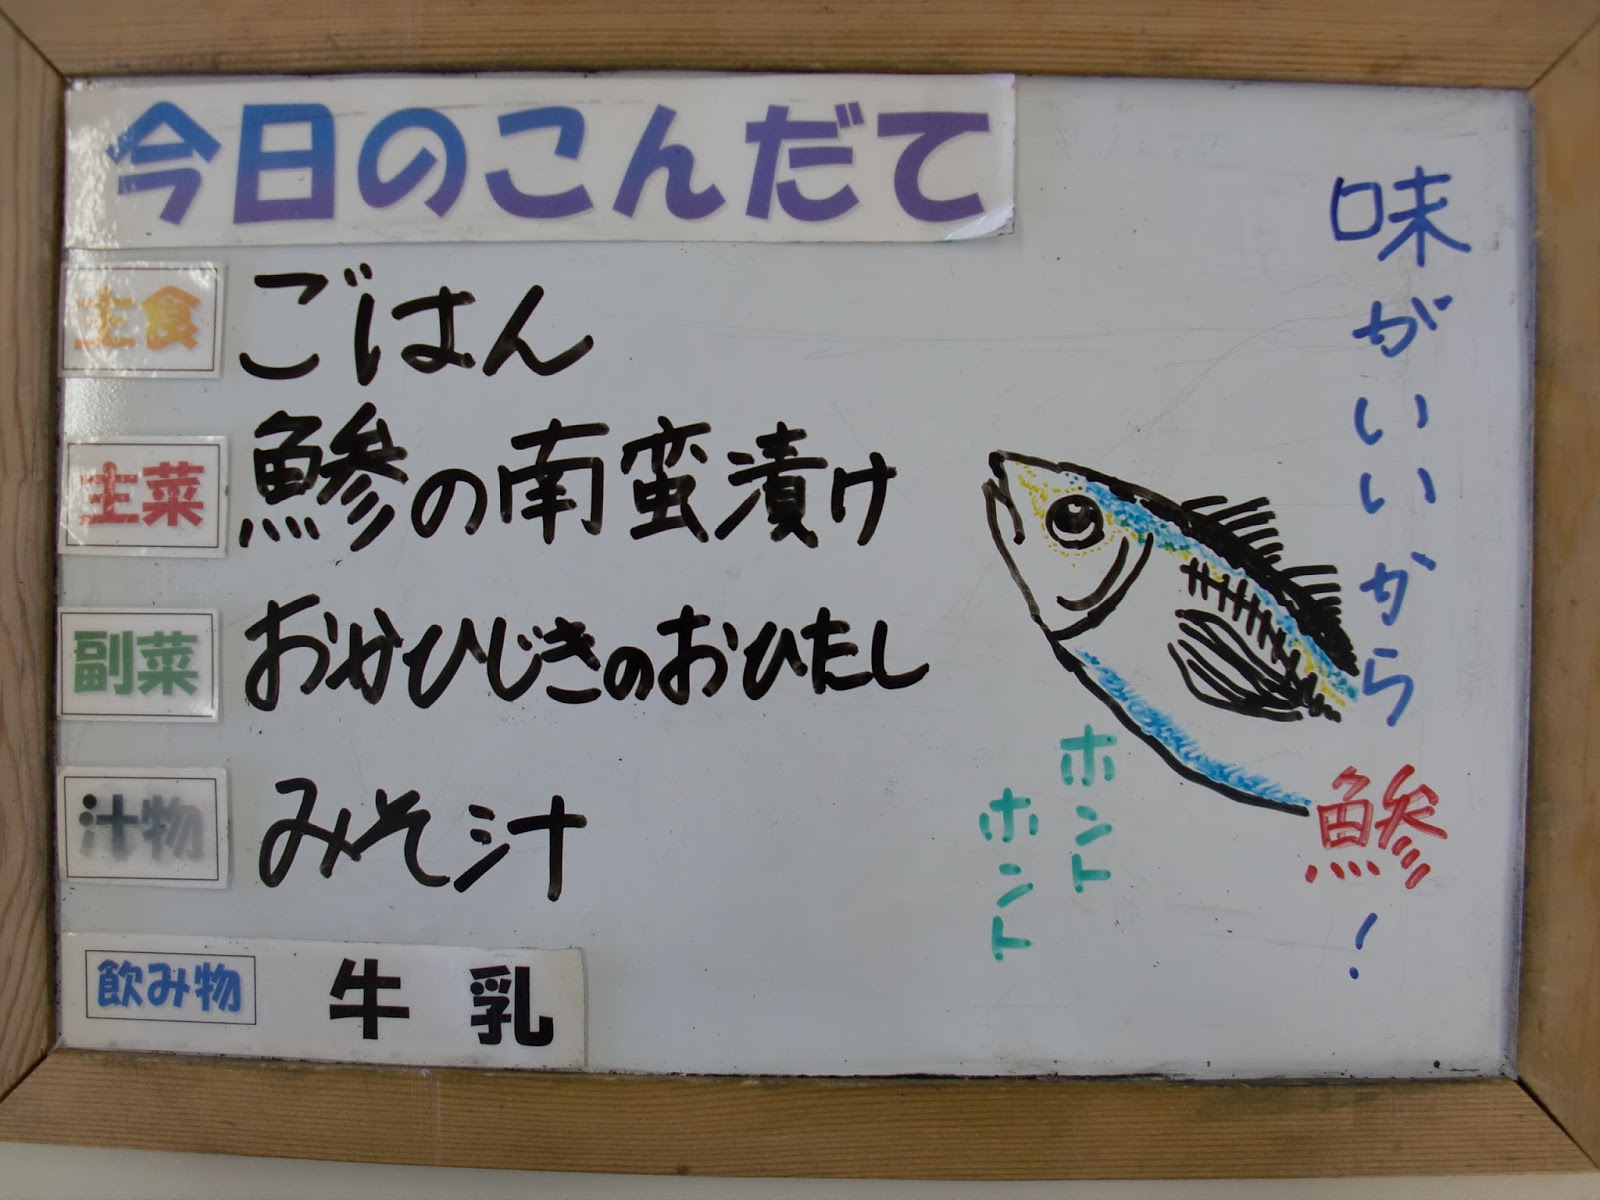 今日のこんだて
主食 ごはん
主菜 鯵の南蛮漬け
副菜 おかひじきのおひたし
汁物 みそ汁
飲み物 牛乳
味がいいから鯵!
ホント
ホント